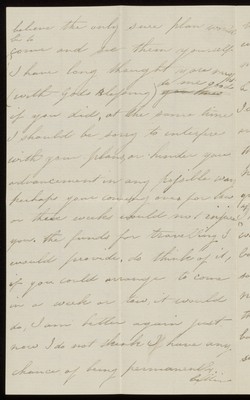 believe the only sure plan would
to be
come and see them yourself
I have long thought you
(with Gods Blessing)
if you did, at the same time
I should be sorry to interfere
with your plans, or hinder your
advancement in any possible way
perhaps your coming over for two
or three weeks would not
you, the funds for traveling I
would provide, do think of it,
if you could arrange to come
in a week or two, it would
do, I am better again just
now I do not think I have any
chance of being permanently
better